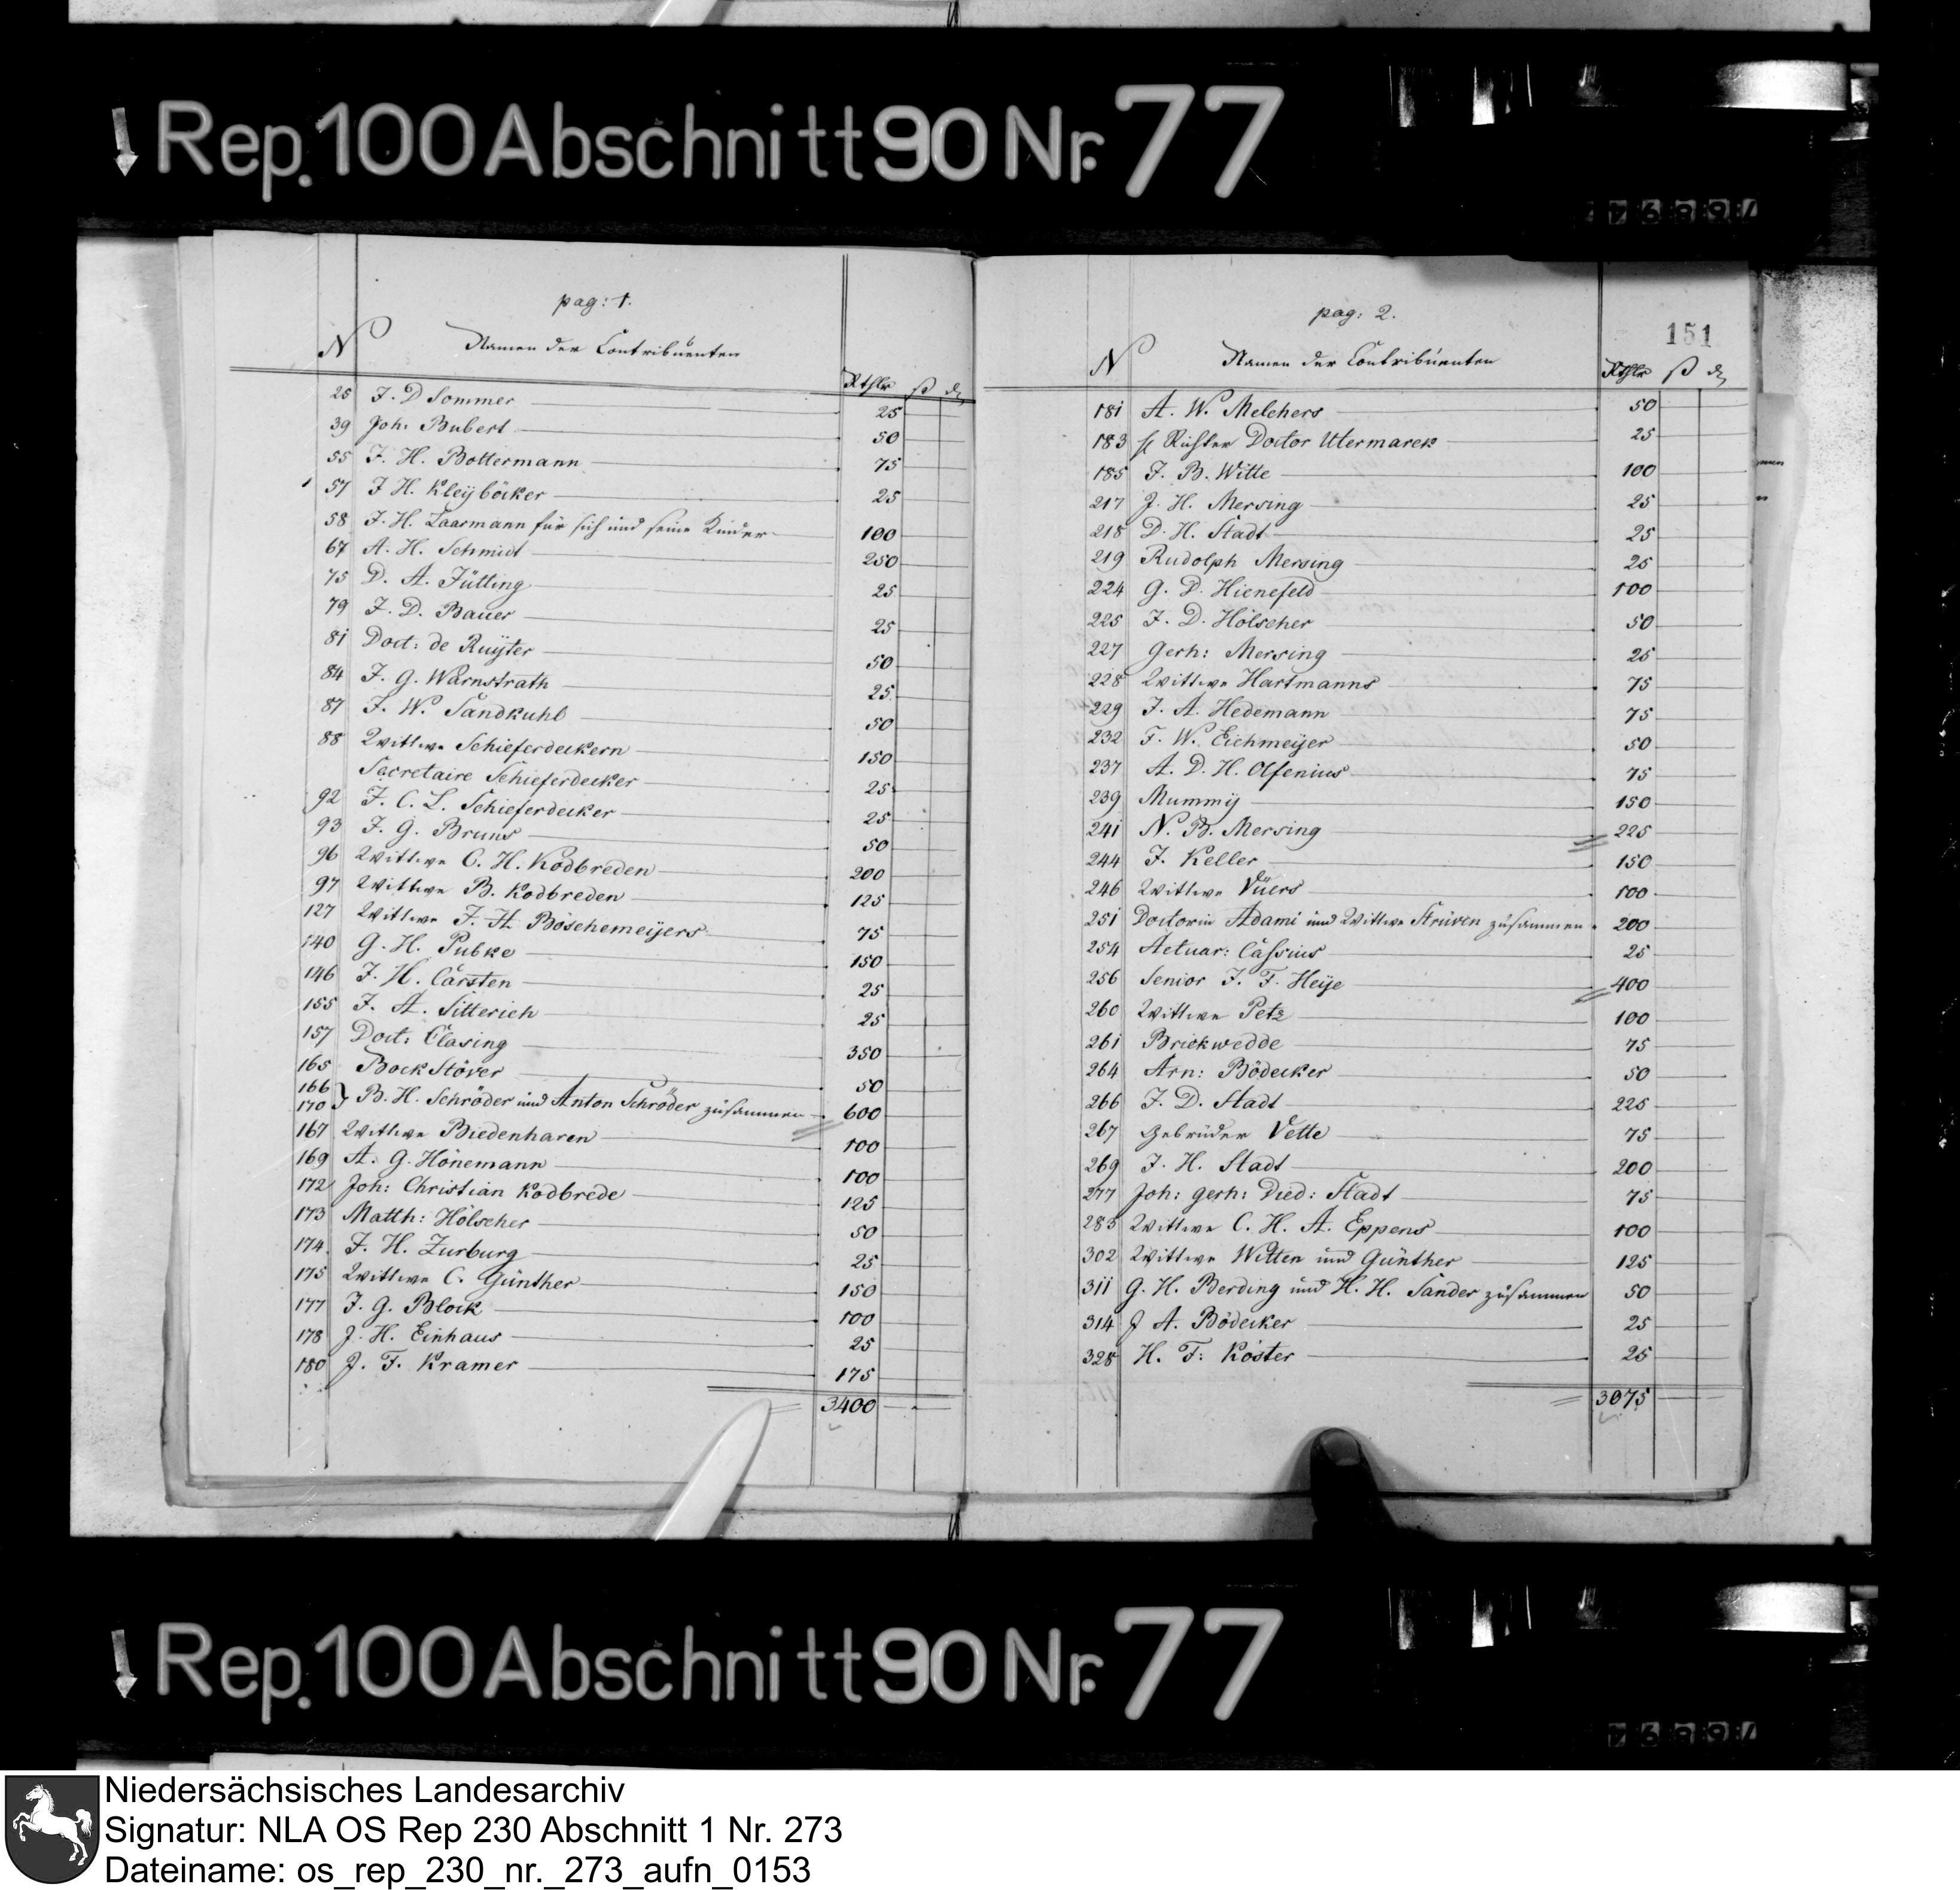 Rep. 100 Abschnitt 90 Nr. 77
pag: 1.
N Namen der Contribuenten Rthlr ß d
25 F. D Sommer 25
39 Joh: Bubert 50
55 F. H. Bottermann 75
57 F H. Kleyböcker 25
58 F. H. Laarmann für sich und seine Kinder 100
67 A. H. Schmidt 250
75 D. A. Fütting 25
79 F. D. Bauer 25
81 Doct: de Ruyter 50
84 F. G. Warnstrath 25
87 F. W. Sandkuhl 50
88 Wittwe Schieferdeckern 150
Secretaire Schieferdecker 25
92 F. C. L. Schieferdecker 25
93 F. G. Bruns 50
96 Wittwe C. H. Kodbreden 200
97 Wittwe B. Kodbreden 125
127 Wittwe F. H. Böschemeyers 75
140 G. H. Pubke 150
146 F. H. Carsten 25
155 F. A. Sitterich 25
157 Doct: Clasing 350
165 Bock Stöver 50
166
170 } B. H. Schröder und Anton Schröder zusammen 600
167 Wittwe Biedenharen 100
169 A. G. Hönemann 100
172 Joh: Christian Kodbrede 125
173 Matth: Hölscher 50
174 F. H. Zurburg 25
175 Wittwe C. Günther 150
177 F. G. Block 100
178 J. H. Einhaus 25
180 J. F. Kramer 175
3400
pag: 2.
151
N Namen der Contribuenten Rthlr ß d
181 A. W. Melchers 50
183 Richter Doctor Utermarck 25
185 F. B. Witte 100
217 J. H. Mersing 25
218 D. H. Stadt 25
219 Rudolph Mersing 25
224 G. D. Hienefeld 100
225 F. D. Hölscher 50
227 Gerh: Mersing 25
228 Wittwe Hartmanns 75
229 F. A. Hedemann 75
232 F. W. Eichmeyer 50
237 A. D. H. Olfenius 75
239 Mummy 150
241 N. B. Mersing 225
244 F. Keller 150
246 Wittwe Vüers 100
251 Doctorin Adami und Wittwe Struven zusammen 200
254 Actuar: Cassius 25
256 Senior F. F. Heye 400
260 Wittwe Petz 100
261 Brickwedde 75
264 Arn: Bödecker 50
266 F. D. Stadt 225
267 Gebrüder Vette 75
269 F. H. Stadt 200
277 Joh: Gerh: Died: Stadt 75
285 Wittwe C. H. A. Eppens 100
302 Wittwe Witten und Günther 125
311 G. H. Berding und H. H. Sander zusammen 50
314 J A. Bödecker 25
328 H. F: Köster 25
3075
Rep. 100 Abschnitt 90 Nr. 77
Niedersächsisches Landesarchiv
Signatur: NLA OS Rep 230 Abschnitt 1 Nr. 273
Dateiname: os_rep_230_nr._273_aufn_0153